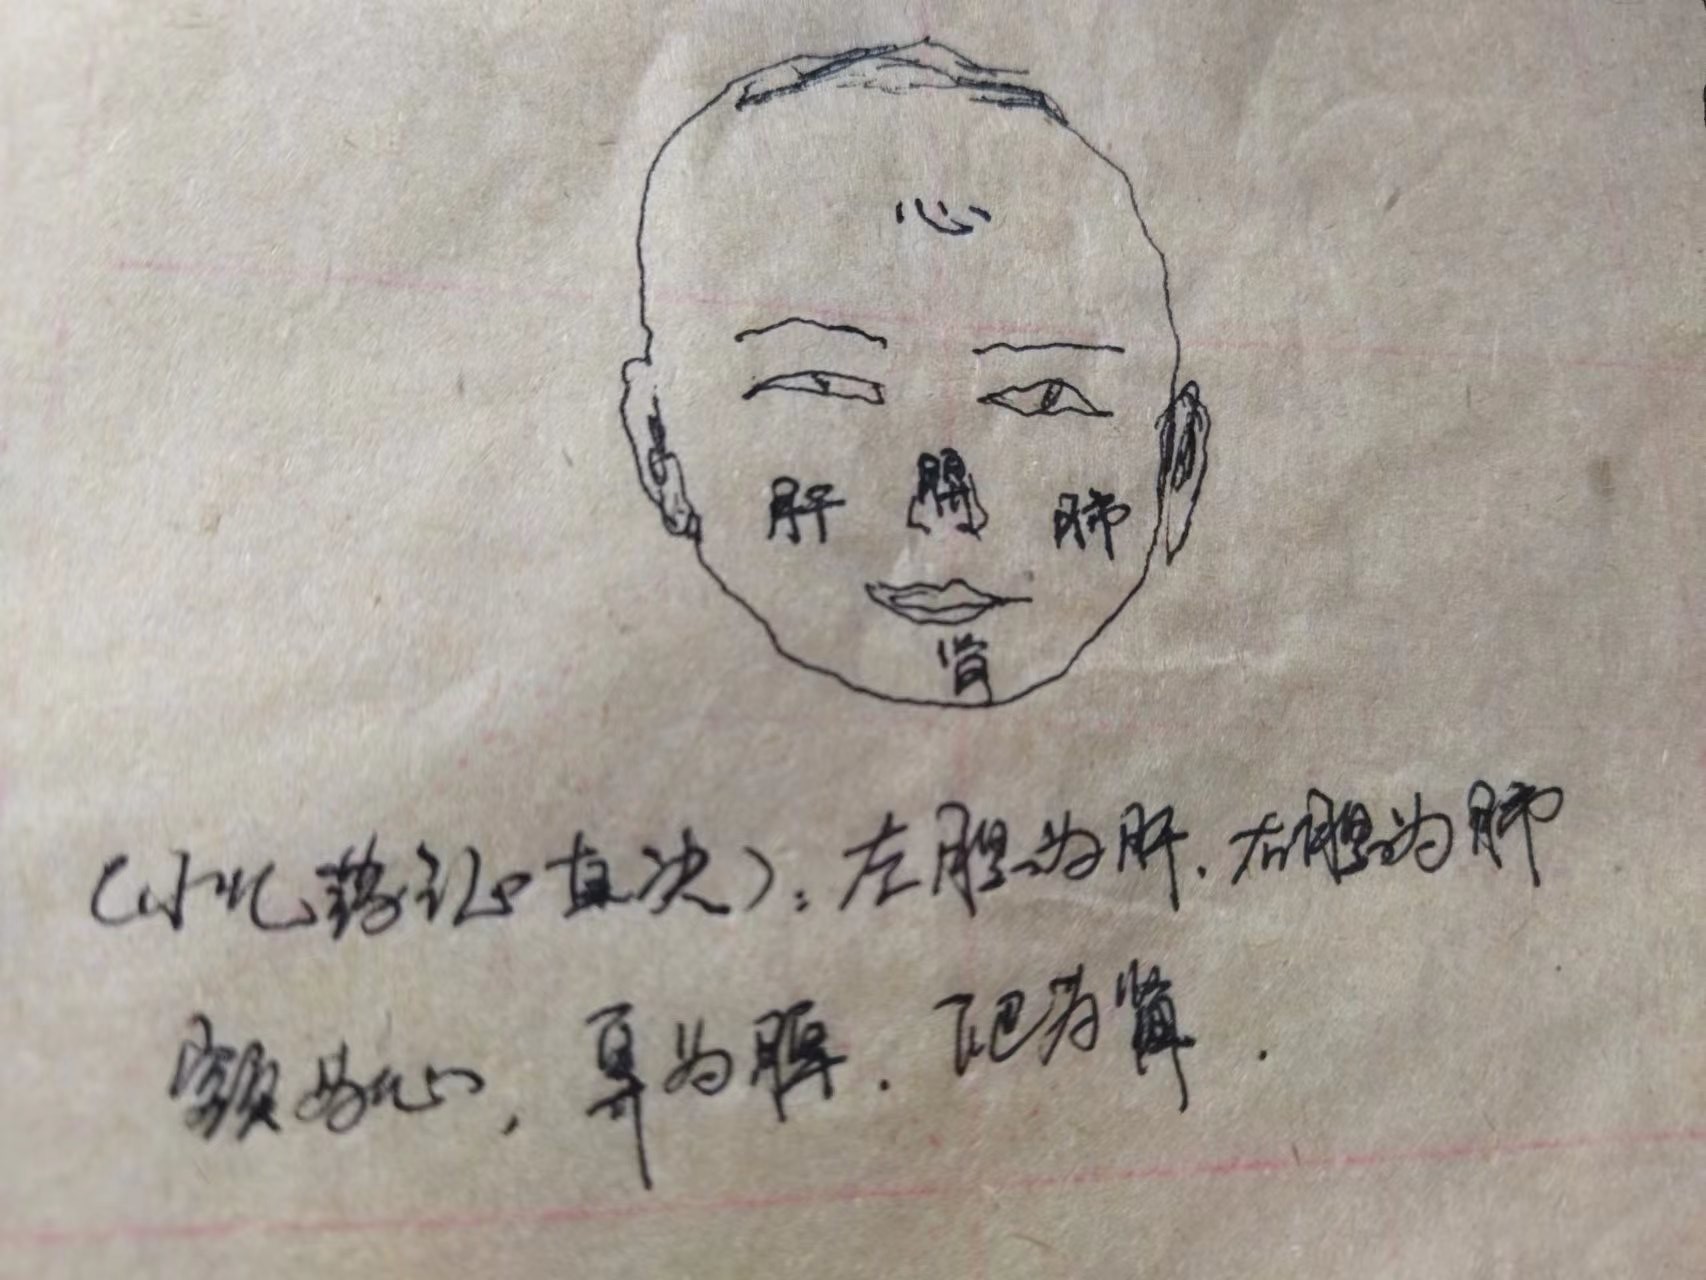 心
肝 脾 肺
肾
(小儿药证直决):左腮为肝.右腮为肺
额为心,鼻为脾.下巴为肾.